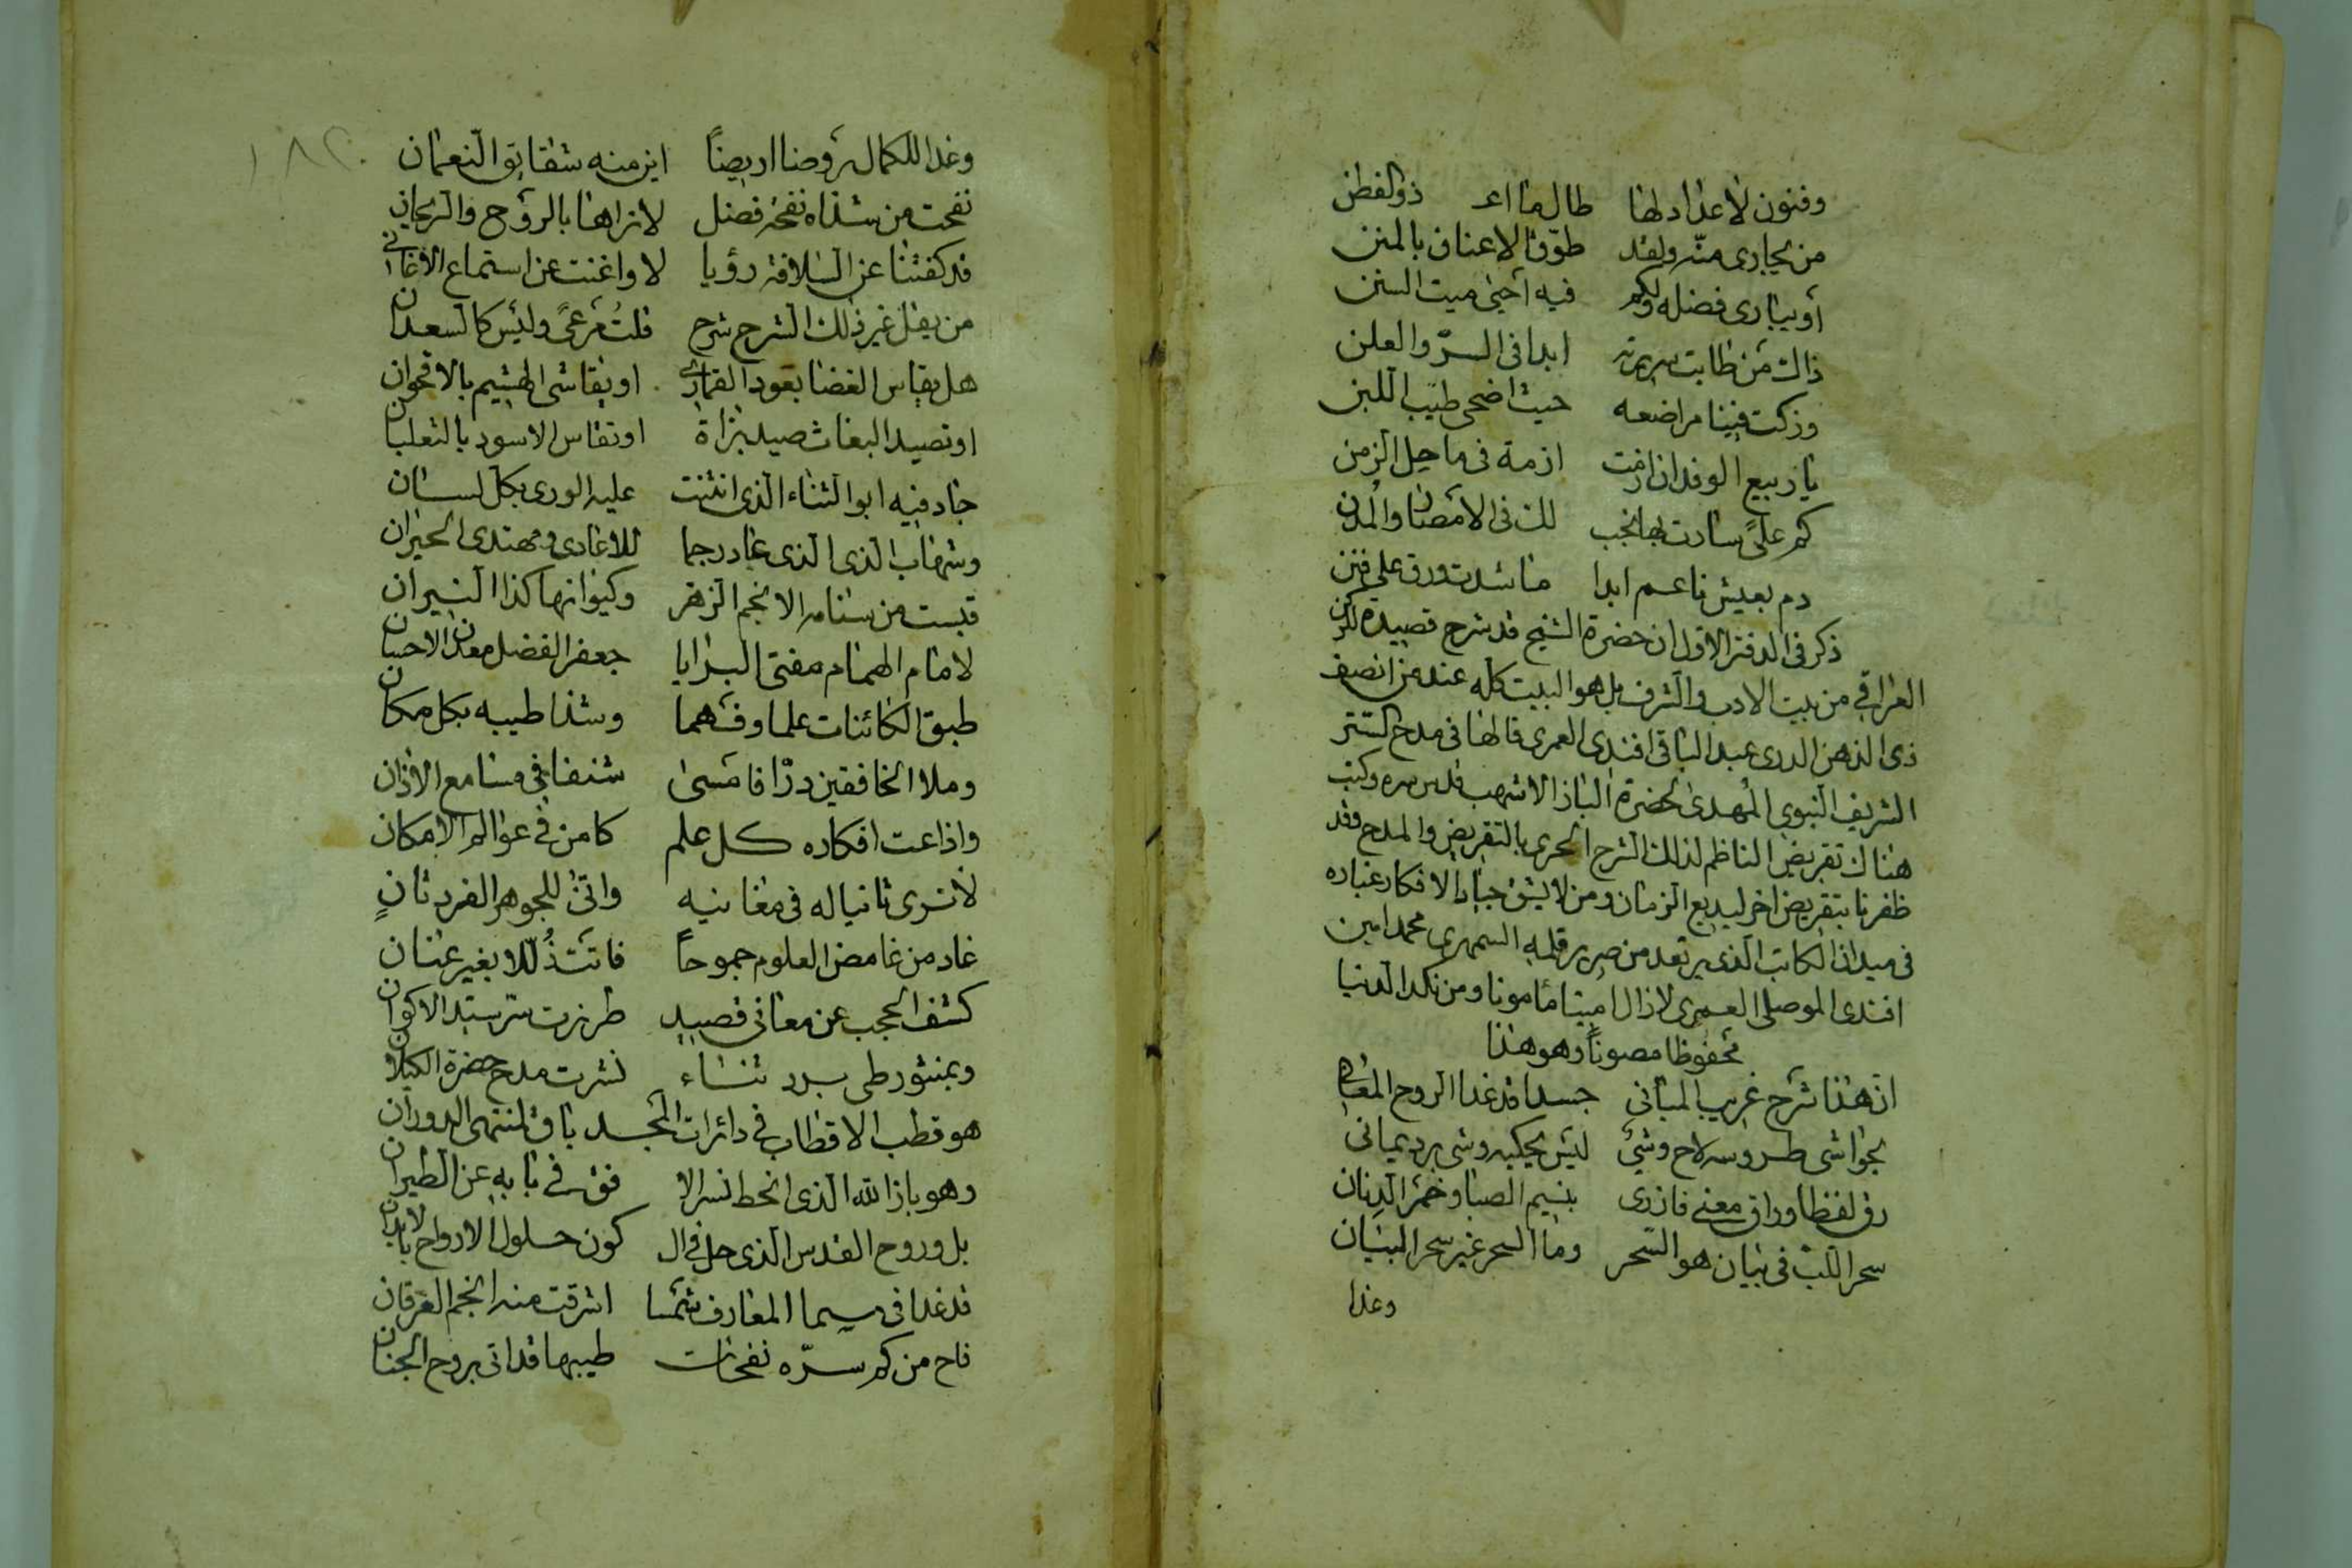 وفنون لا عداد لها طالما اعـ ذو الفطن
من يجارى منه ولقد طوّق الاعناق بالمنن
أو يبارى فضله ولكم فيه أحيى ميت السنن
ذاك من طابت سريرته ابدا فى السرّ والعلن
وزكت فينا مراضعه حيث اضحى طيب اللبن
يا ربيع الوفد ان ازمت ازمة فى ماحل الزمن
كم علىً سارت بها نجب لك فى الأمصار والمدن
دم بعيش ناعم ابدا ما شدت ورق على فنن
ذكر فى الدفتر الاول ان حضرة الشيخ قد شرح قصيدة لكن
العراقي من بيت الادب والشرف بل هو البيت كله عند من انصف
ذى الذهن الدرى عبد الباقى افندى العمرى قالها فى مدح الستر
الشريف النبوى المهدى لحضرة الباز الاشهب قدس سره وكتب
هناك تقريض الناظم لذلك الشرح الحرى بالتقريض والمدح وقد
ظفرنا بتقريض اخر لبديع الزمان ومن لا يشق جياد الافكار غباره
فى ميدان الكاتب الذى يرتعد من صرير قلمه السمهرى محمد امين
افندى الموصلى العمرى لا زال امينا مأمونا ومن نكد الدنيا
محفوظا مصوناً وهو هذا
انّ هذا شرح غريب المبانى جسدا قد غدا الروح المعانى
بحواشى طروسه لاح وشىٌ ليس يحكيه وشى برد يمانى
رق لفظا وراق معنى فازرى بنسيم الصبا وخمر الدنان
سحر اللبّ فى بيان هو السحر وما السحر غير سحر البيان
وغدا
١٨٢
وغدا للكمال روضا اريضاً اين منه شقايق النعمان
نفحت من شذاه نفحة فضل لا نراها بالروح والريحان
قد كفتنا عن السلافة رؤيا لا واغنت عن استماع الاغانى
من يقل غير ذلك الشرح شرح قلتُ مرعىً وليس كالسعدان
هل يقاس الغضا بعود القمارى او يقاس الهشيم بالاقحوان
او تصيد البغاث صيد بزاة او تقاس الاسود بالثعلبان
جاد فيه ابو الثناء الذى انثنت عليه الورى بكل لسان
وشهاب الذى الذى عاد رجما للاعادى ومهتدى الحيران
قبست من سنائه الانجم الزهر وكيوانها كذا النيران
لامام الهمام مفتى البرايا جعفر الفضل معدن الاحسان
طبق الكائنات علما وفهما وشذا طيبه بكل مكان
وملا الخافقين درّا فامسى شنفا فى مسامع الاذان
واذاعت افكاره كل علم كامن فى عوالم الامكان
لا ترى ثانيا له فى معانيه وانّى للجوهر الفرد ثانٍ
عاد من غامض العلوم جموحاً فاتت ذُلّلا بغير عنان
كشف الحجب عن معانى قصيد طرزت ستر سيد الاكوان
وبمنثور طى برد ثناء نشرت مدح حضرة الكيلانى
هو قطب الاقطاب فى دائرات المجد باق لمنتهى الدوران
وهو باز الله الذى انحط نسر الا فق فى بابه عن الطيران
بل وروح القدس الذى حل فى ال كون حلول الارواح بالابدان
قد غدا فى سما المعارف شمسا اشرقت منه انجم العرفان
فاح من كم سرّه نفحات طيبها قد اتى بروح الجنان